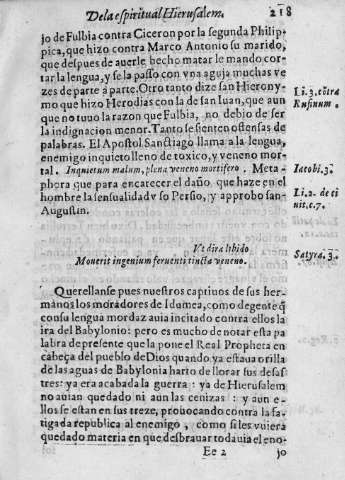 De la espiritual Hierusalem. 218
jo de Fulbia contra Ciceron por la segunda Philip-
pica, que hizo contra Marco Antonio su marido,
que despues de auerle hecho matar le mando cor-
tar la lengua, y se la passo con vna aguja muchas ve
zes de parte a parte. Otro tanto dize san Hierony-
mo que hizo Herodias con la de san Iuan, que aun
que no tuuo la razon que Fulbia, no debio de ser
la indignacion menor. Tanto se sienten ofensas de
palabras. El Apostol Sanctiago llama a la lengua,
enemigo inquieto lleno de toxico, y veneno mor-
tal. Inquietum malum, plena veneno mortifero. Meta-
phora que para encarecer el daño que haze en el
hombre la sensualidad vso Persio, y aprobo san-
Augustin.
Li. 3. cõtra
Rufinum.
Iacobi. 3.
Li. 2. de ci
uit. c. 7.
Vt dira libido
Mouerit ingenium feruenti tincta veneno.
Satyra. 3.
Querellanse pues nuestros captiuos de sus her-
manos los moradores de Idumea, como de gente q̃
con su lengua mordaz auia incitado contra ellos la
ira del Babylonio: pero es mucho de notar esta pa
labra de presente que la pone el Real Propheta en
cabeça del pueblo de Dios quando ya estaua orilla
de las aguas de Babylonia harto de llorar sus desas
tres: ya era acabada la guerra: ya de Hierusalem
no auian quedado ni aun las cenizas: y aun e-
llos se estan en sus treze, prouocando contra la fa-
tigada republica al enemigo, como si les vuiera
quedado materia en que desbrauar todauia el eno-
Ee 2 jo